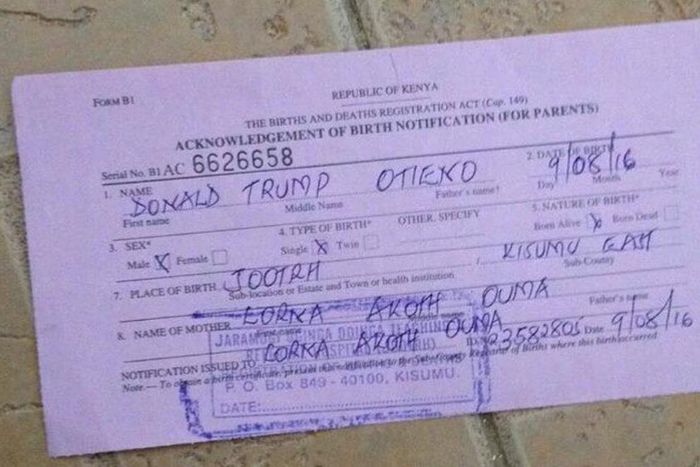 FORM B1
REPUBLIC OF KENYA
THE BIRTHS AND DEATHS REGISTRATION ACT (Cap. 149)
ACKNOWLEDGEMENT OF BIRTH NOTIFICATION (FOR PARENTS)
Serial No. B1 AC 6626658
1. NAME DONALD TRUMP OTIENO
First name Middle Name Father's name†
2. DATE OF BIRTH 9/08/16
Day Month Year
3. SEX* Male X Female
4. TYPE OF BIRTH* Single X Twin
OTHER, SPECIFY
5. NATURE OF BIRTH* Born Alive X Born Dead
7. PLACE OF BIRTH JOOTRH KISUMU EAST
Sub-location or Estate and Town or health institution Sub-County
8. NAME OF MOTHER LORKA AKOTH OUMA
Father's name
NOTIFICATION ISSUED TO LORKA AKOTH OUMA ID No 23582805 Date 9/08/16
Note — To obtain a birth certificate, present this notification to the Sub-County Registrar of Births where this birth occurred.
JARAMOGI OGINGA ODINGA TEACHING
P. O. Box 849 - 40100, KISUMU.
DATE: